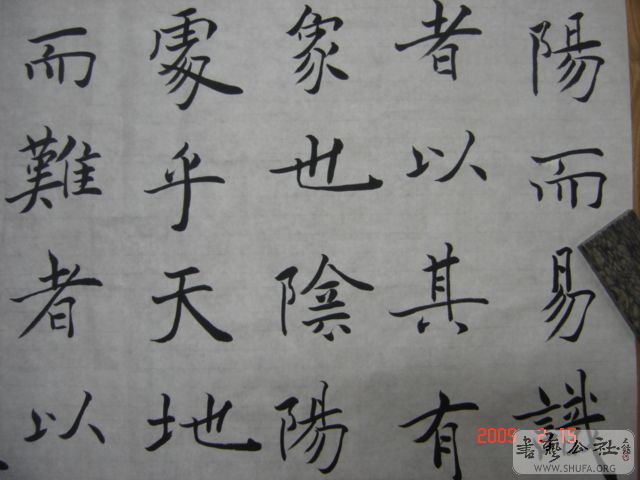 陽而易識
者以其有
象也陰陽
處乎天地
而難者以
2009 2 15
書藝公社
WWW.SHUFA.ORG